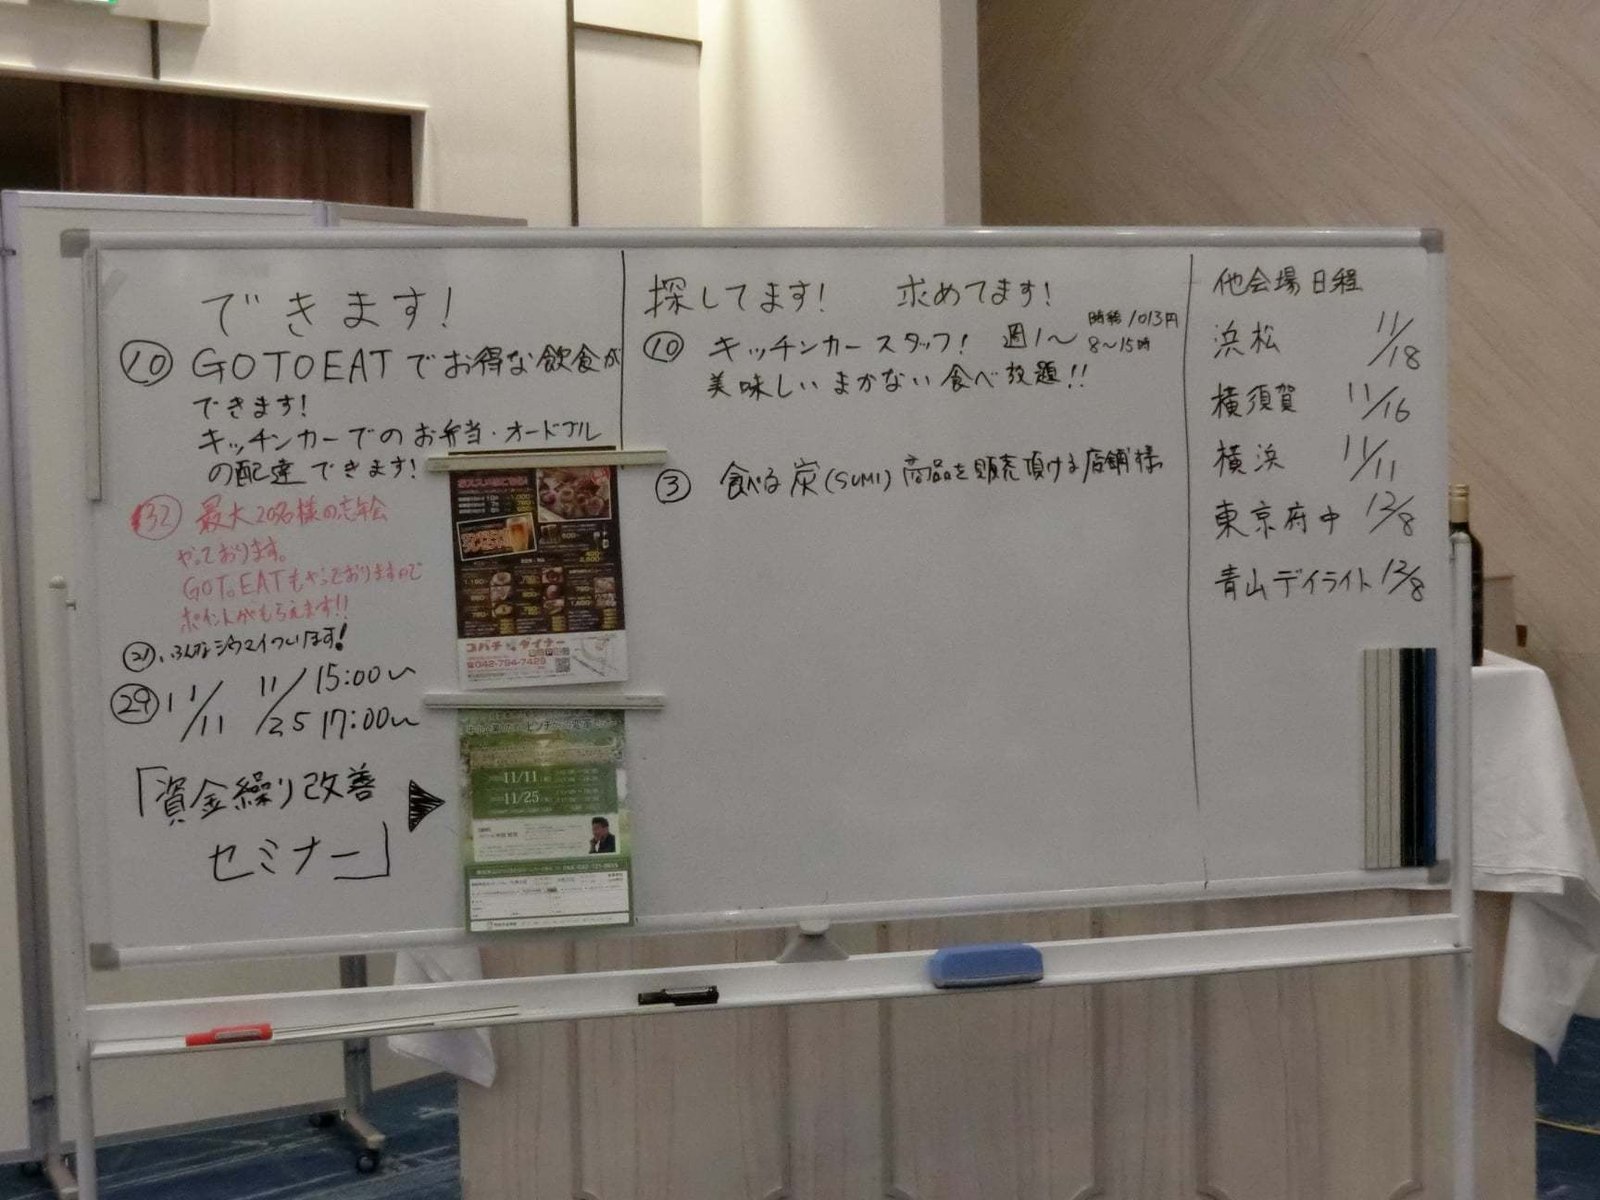 できます!
⑩ GOTOEATでお得な飲食が
できます!
キッチンカーでのお弁当・オードブル
の配達できます!
㉜ 最大20名様の忘年会
やっております。
GOToEATもやっておりますので
ポイントがもらえます!!
㉑
㉙ 11/11 11/25 15:00〜 17:00〜
「資金繰り改善
セミナー」
コパチ ダイナー
042-794-7429
11/11
11/25
探してます! 求めてます!
⑩ キッチンカースタッフ! 週1〜 時給1013円
8〜15時
美味しいまかない食べ放題!!
③ 食べる炭(SUMI)商品を販売頂ける店舗様
他会場日程
浜松 11/18
横須賀 11/16
横浜 11/11
東京府中 12/8
青山デイライト 12/8